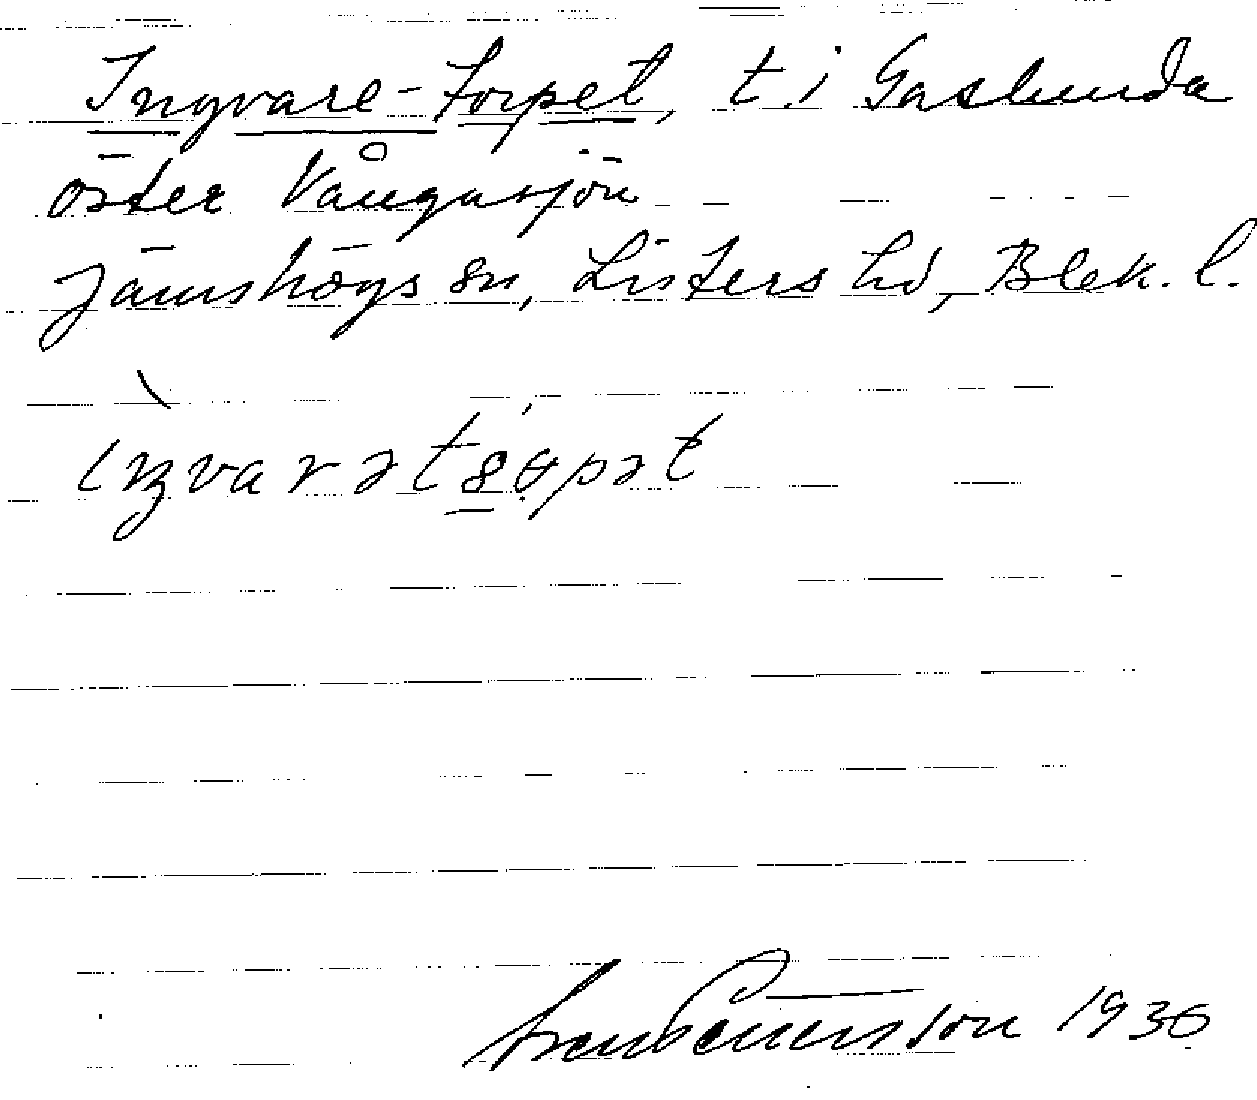 Ingvare-torpet, t. i Gaslunda
öster Vångasjön
Jämshögs sn, Listers hd, Blek. l.
1936